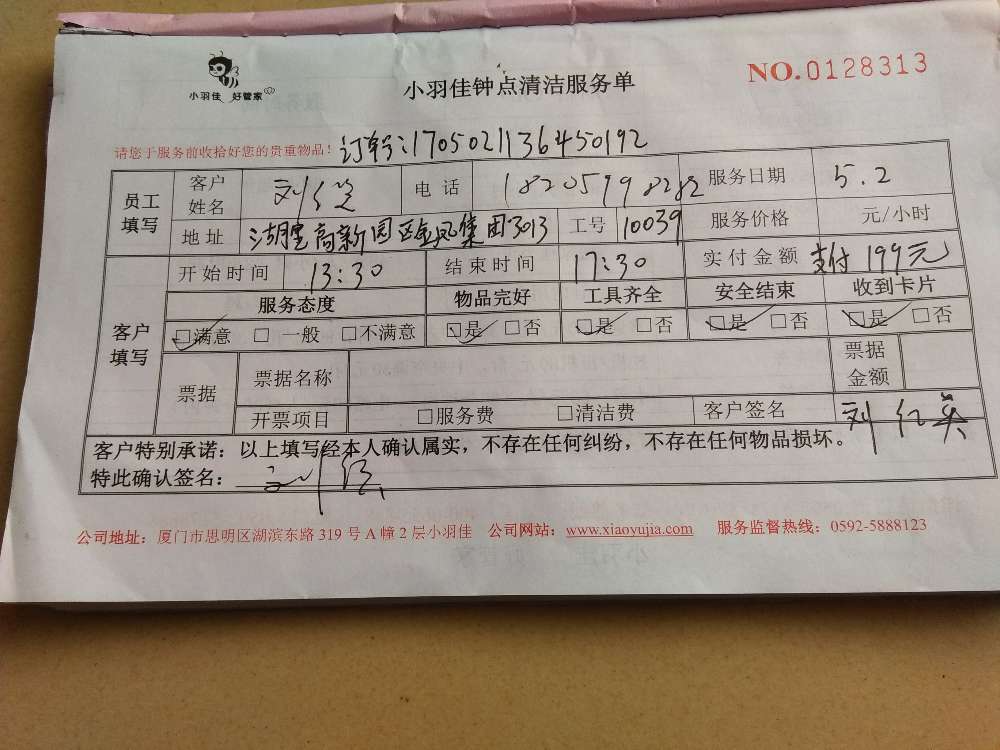 小羽佳 好管家
小羽佳钟点清洁服务单
NO.0128313
请您于服务前收拾好您的贵重物品！ 订单号:1705021136450192
员工填写 客户姓名 刘红英 电话 18205998282 服务日期 5.2
地址 湖里高新园区金凤集团3013 工号 10039 服务价格 元/小时
开始时间 13:30 结束时间 17:30 实付金额 支付199元
客户填写 服务态度 物品完好 工具齐全 安全结束 收到卡片
□满意 □一般 □不满意 □是 □否 □是 □否 □是 □否 □是 □否
票据 票据名称 票据金额
开票项目 □服务费 □清洁费 客户签名 刘红英
客户特别承诺：以上填写经本人确认属实，不存在任何纠纷，不存在任何物品损坏。
特此确认签名：
公司地址：厦门市思明区湖滨东路319号A幢2层小羽佳 公司网站：www.xiaoyujia.com 服务监督热线：0592-5888123